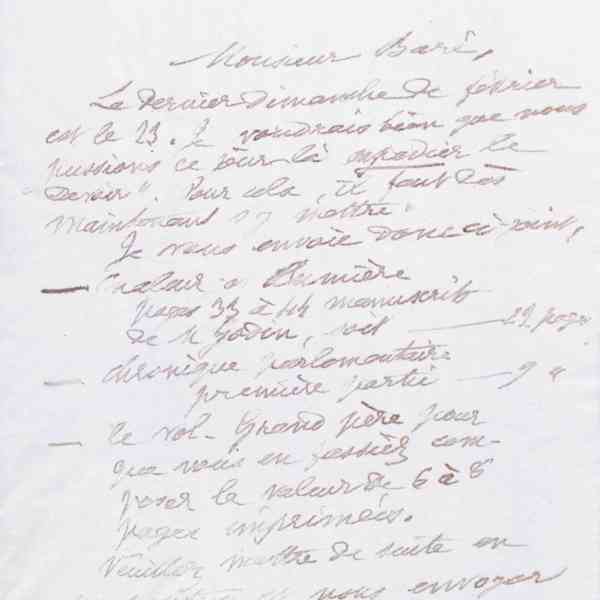 Monsieur Baré,
Le dernier Dimanche de février
est le 23. Je voudrais bien que nous
pussions ce jour là expédier le
Devoir". Pour cela, il faut dès
maintenant s'y mettre.
Je vous envoie donc ci-joint,
— Chaleur & Lumière
pages 33 à 44 manuscrit
de M Godin, soit — 29 pages
— Chronique parlementaire
première partie — 9 "
— le vol. Grand père pour
que vous en fassiez com-
poser la valeur de 6 à 8
pages imprimées.
Veuillez mettre de suite en
nous envoyer